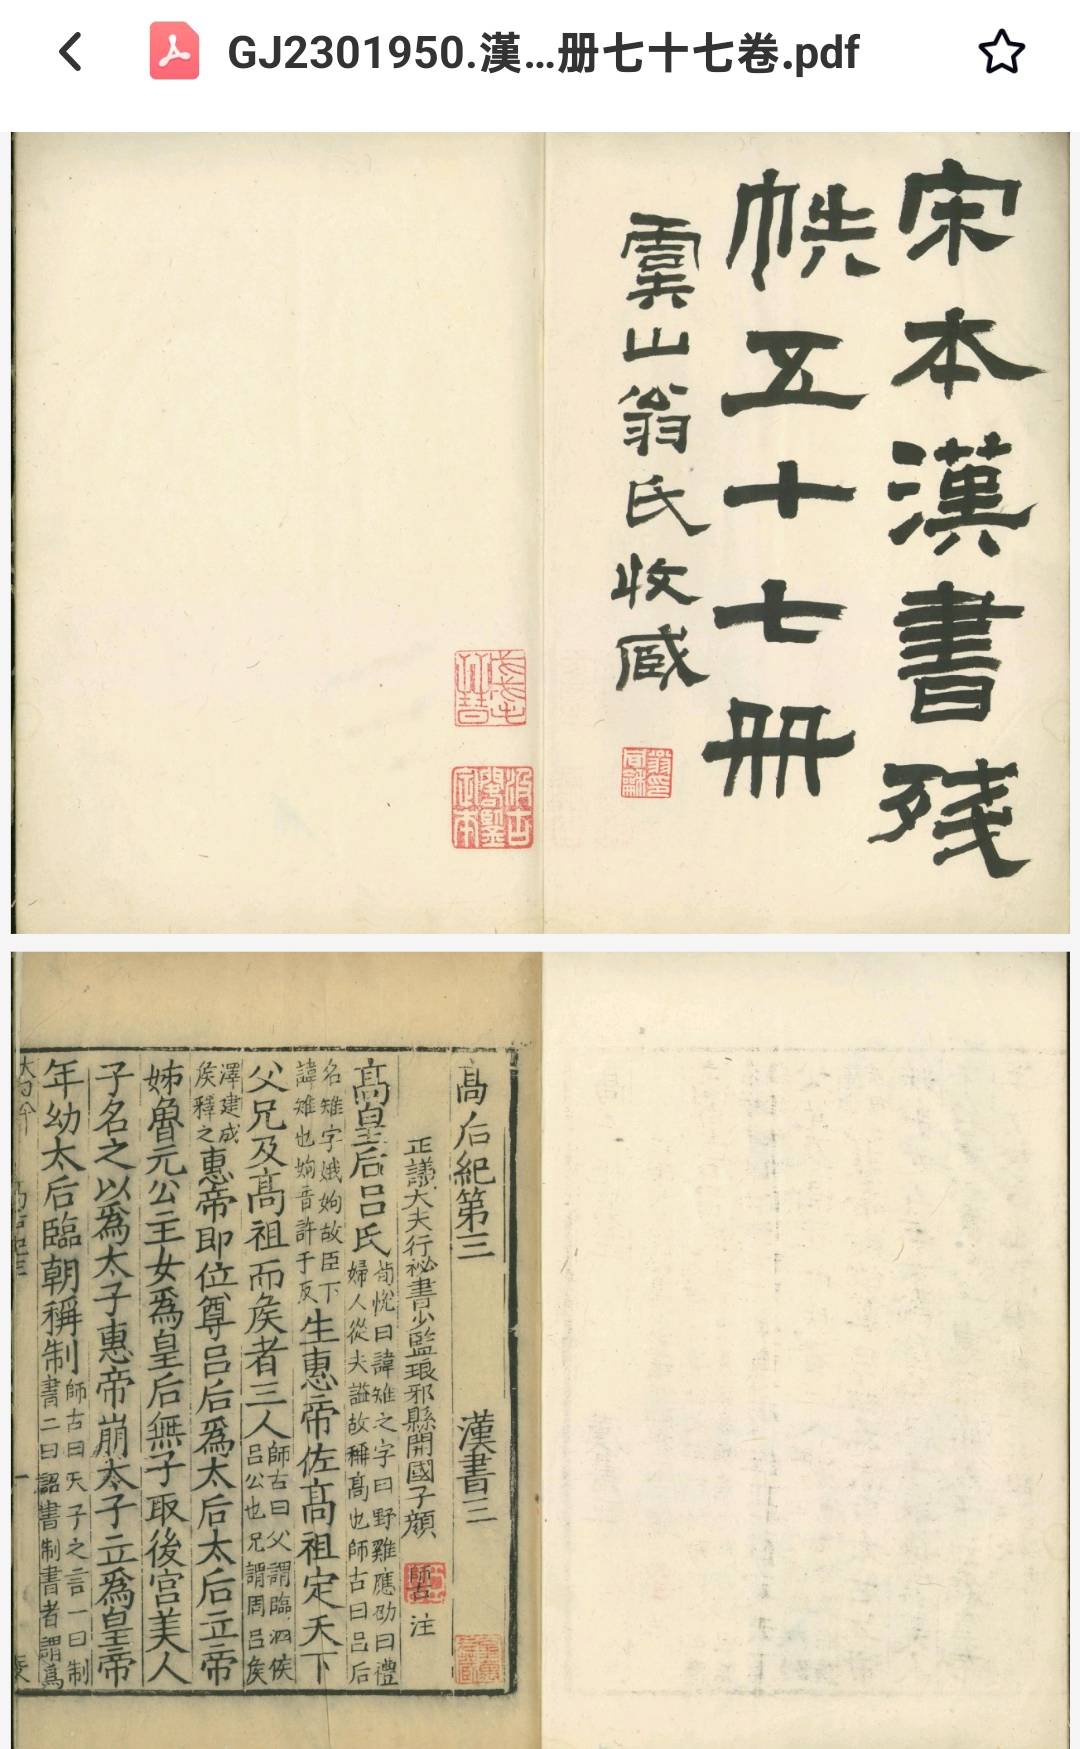 GJ2301950.漢...册七十七卷.pdf
宋本漢書殘
帙五十七冊
虞山翁氏收臧
高后紀第三 漢書三
正議大夫行祕書少監琅邪縣開國子顏師古注
高皇后呂氏
荀悅曰諱雉之字曰野雞應劭曰禮
婦人從夫謚故稱高也師古曰呂后
名雉字娥姁故臣下
諱雉也姁音許于反
生惠帝佐高祖定天下
父兄及高祖而矦者三人
師古曰父謂臨泗矦
呂公也兄謂周呂矦
澤建成
矦釋之
惠帝即位尊呂后爲太后太后立帝
姊魯元公主女爲皇后無子取後宮美人
子名之以爲太子惠帝崩太子立爲皇帝
年幼太后臨朝稱制
師古曰天子之言一曰制
書二曰詔書制書者謂爲